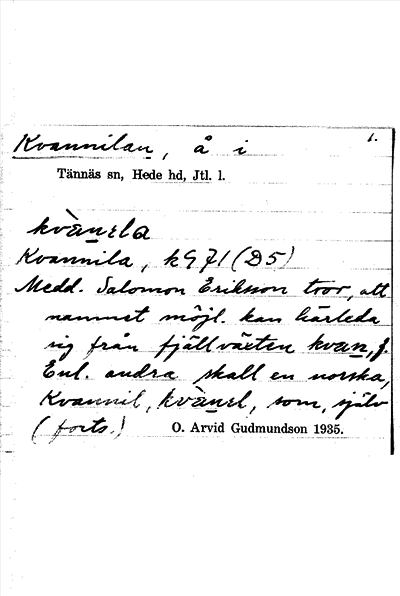 Kvannilan, å i
1.
Tännäs sn, Hede hd, Jtl. l.
kvànɛla
Kvannila, k971 (D5)
Medd. Salomon Erikson tror, att
namnet möjl. kan härleda
sig från fjällväxten kvan, f.
Enl. andra skall en norska,
Kvannil, kvànɛl, som, själv
(forts.) O. Arvid Gudmundson 1935.